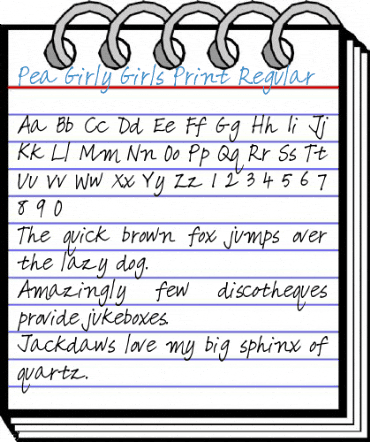 Pea Girly Girls Print Regular
Aa Bb Cc Dd Ee Ff Gg Hh Ii Jj
Kk Ll Mm Nn Oo Pp Qq Rr Ss Tt
Uu Vv Ww Xx Yy Zz 1 2 3 4 5 6 7
8 9 0
The quick brown fox jumps over
the lazy dog.
Amazingly few discotheques
provide jukeboxes.
Jackdaws love my big sphinx of
quartz.